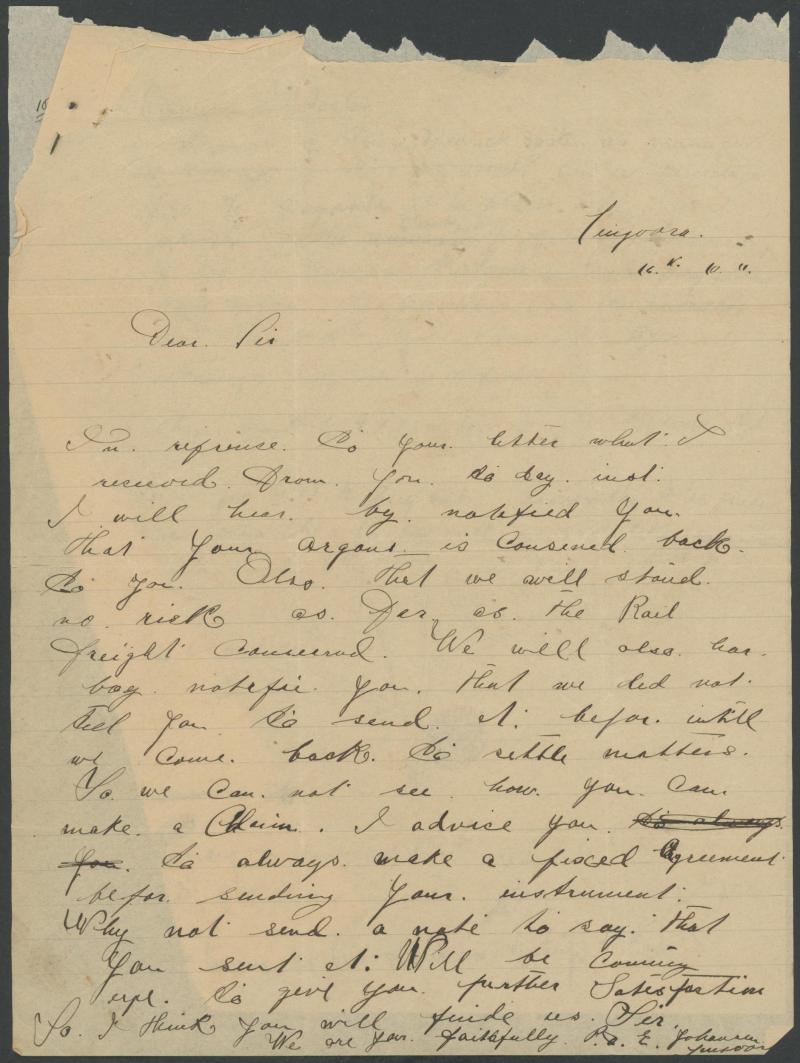 16
Tingoora.
16. 10. 11.
Dear. Sir
In. refrense. to your. letter what. I
received. From. you. to day. inst.
I will hear. by. notefied you.
that your organs is Consened. back.
to you. Also. that we will stand.
no. risk as. Far, as. the Rail
freight Conserned. We will also. har.
bay. notefie. you. that we did not.
tell you to send. it. befor. intill
we come. back. to settle matters.
So. we can. not see. how. you can.
make. a Claim. I advice you. to always.
you. to always. make a fixed Agreement.
befor. sending your. instrument.
Why not send. a note to say. that
you sent it. Will be coming
upe. to give you. further Satisfaction
So. I think you will finde us. Sir.
We are your. faithfully. E. Johansen